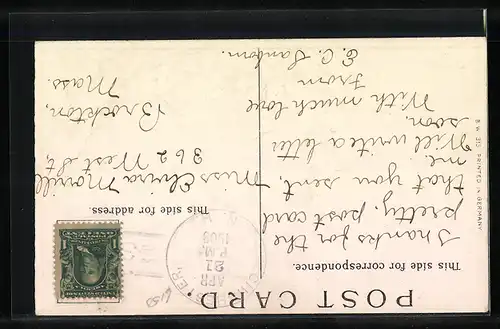 POST CARD.
This side for correspondence.
This side for address.
Thanks for the
pretty post card
that you sent,
me.
Will write a letter
soon.
With much love
from
E. C. Sanborn.
Miss Elvira
362 West St.
Brockton,
Mass.
APR
27
P M
1908
B.W. 313 PRINTED IN GERMANY